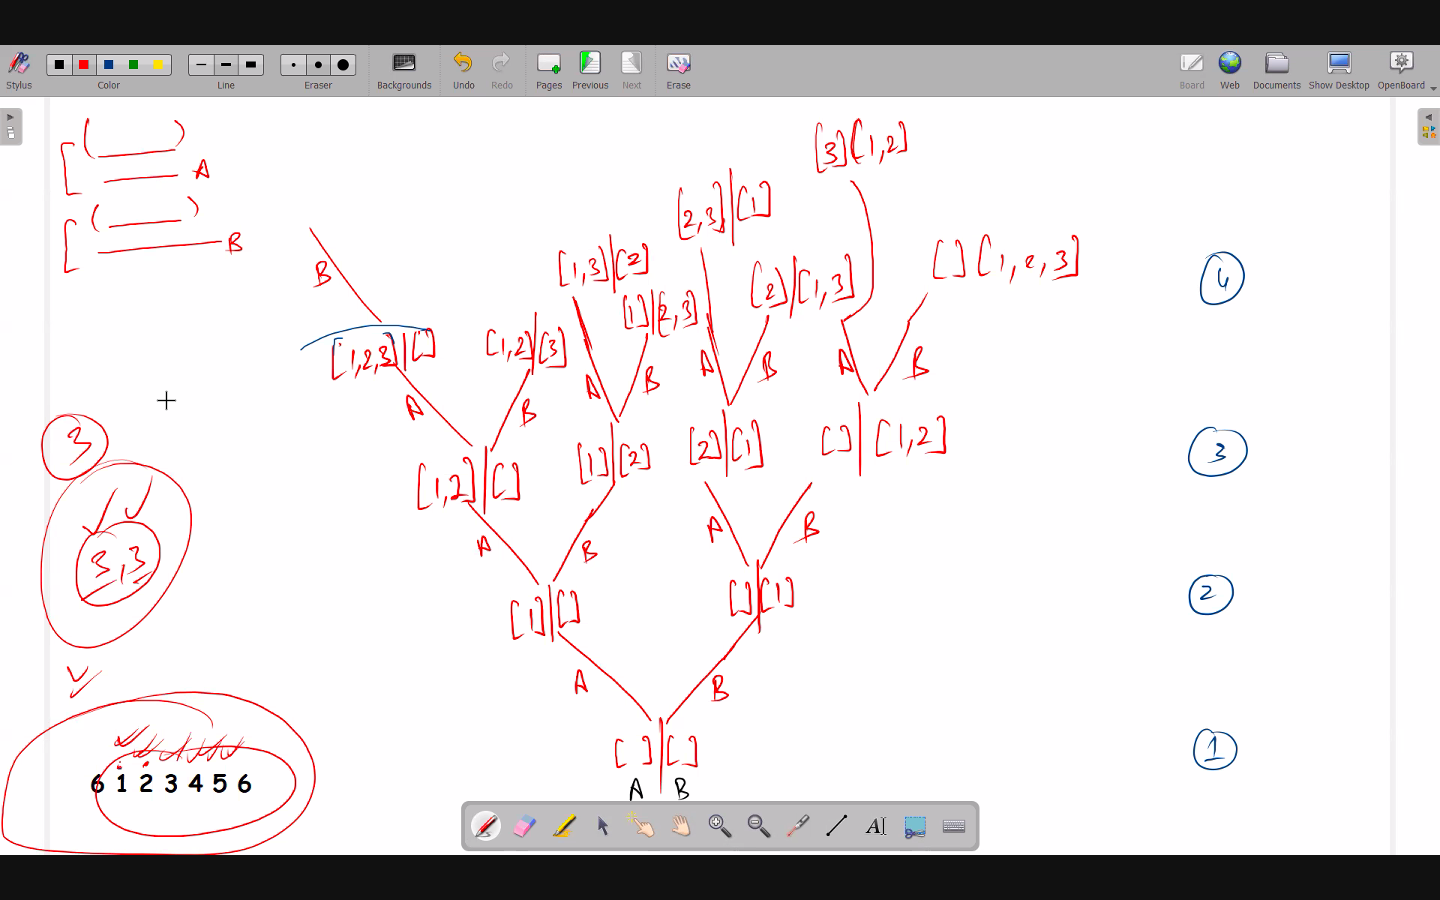 Stylus Color Line Eraser Backgrounds Undo Redo Pages Previous Next Erase Board Web Documents Show Desktop OpenBoard
A
B
[3][1,2]
[2,3]|[1]
[1,3]|[2]
[] [1,2,3]
[2]|[1,3]
[1]|[2,3]
4
B
[1,2,3]|[]
[1,2]|[3]
A B A B A B A B
3
[1,2]|[]
[1]|[2]
[2]|[1]
[]|[1,2]
3
A B A B
3,3
[1]|[]
[]|[1]
2
A B
[]|[]
1
A B
6 1 2 3 4 5 6